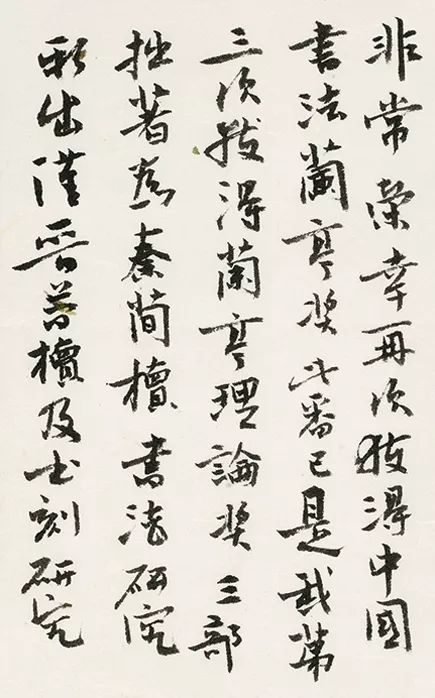 非常榮幸再次獲得中國
書法蘭亭奖此番已是我第
三次獲得蘭亭理論奖三部
拙著為秦简牘書法研究
新出漢晋简牘及书刻研究